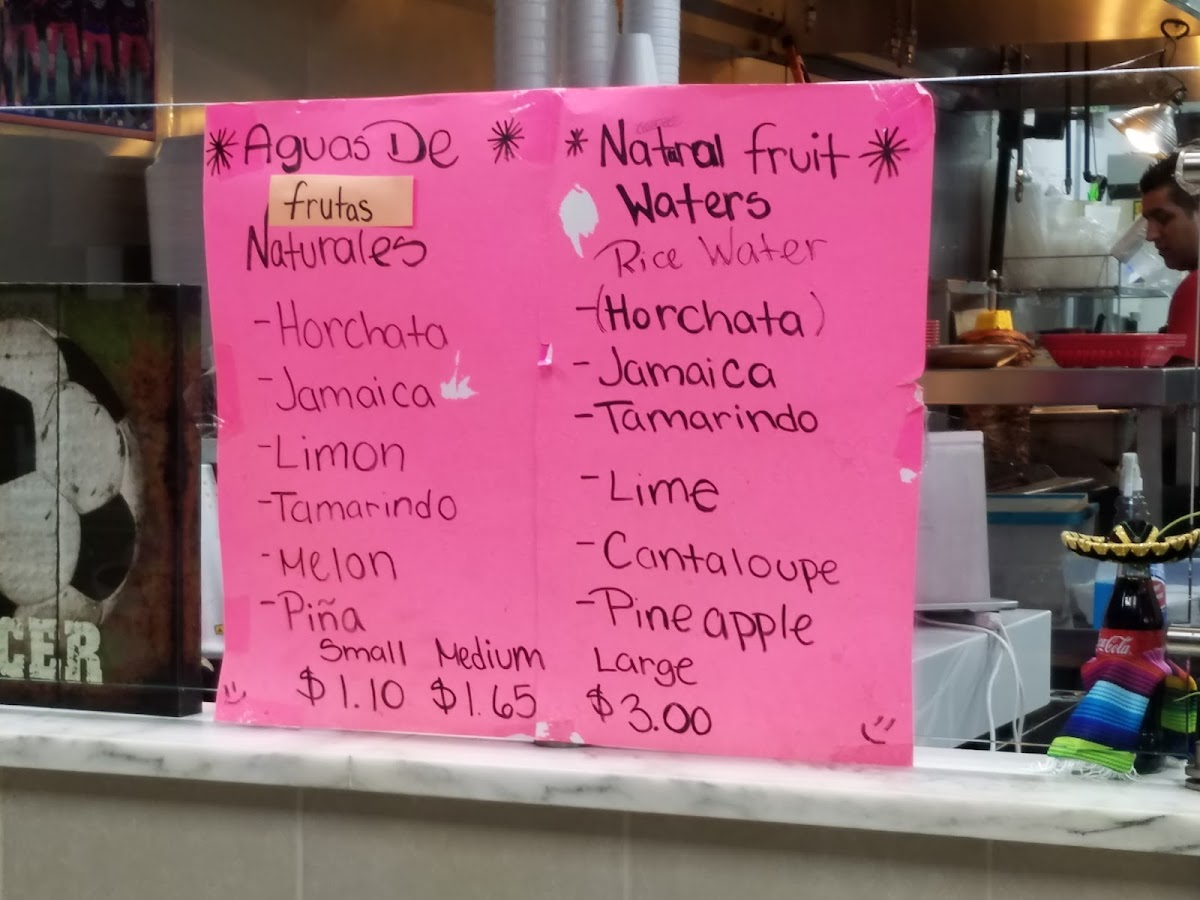 *Aguas De *
frutas
Naturales
-Horchata
-Jamaica
-Limon
-Tamarindo
-Melon
-Piña
* Natural fruit *
Waters
Rice Water
-(Horchata)
-Jamaica
-Tamarindo
-Lime
-Cantaloupe
-Pineapple
Small Medium Large
$1.10 $1.65 $3.00
CER
Coca-Cola